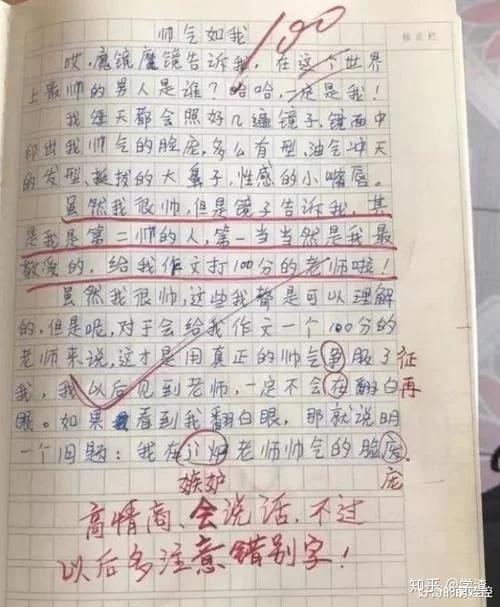 帅气如我
100
修正栏
哎,魔镜魔镜告诉我,在这个世界
上最帅的男人是谁?哈哈,一定是我!
我每天都会照好几遍镜子,镜面中
印出我帅气的脸庞,多么有型,油气冲天
的发型、挺拔的大鼻子,性感的小嘴唇。
虽然我很帅,但是镜子告诉我,其
是我是第二帅的人,第一当当然是我最
敬爱的,给我作文打100分的老师啦!
虽然我很帅,这些我都是可以理解
的,但是呢,对于会给我作文一个100分的
老师来说,这才是用真正的帅气到服了 征
我,我以后见到老师,一定不会在翻白 再
眼。如果看到我翻白眼,那就说明
一个问题:我在老师帅气的脸
嫉妒
庞
高情商、会说话,不过
以后多注意错别字!
知乎 @学渣
好奇的萌娃控